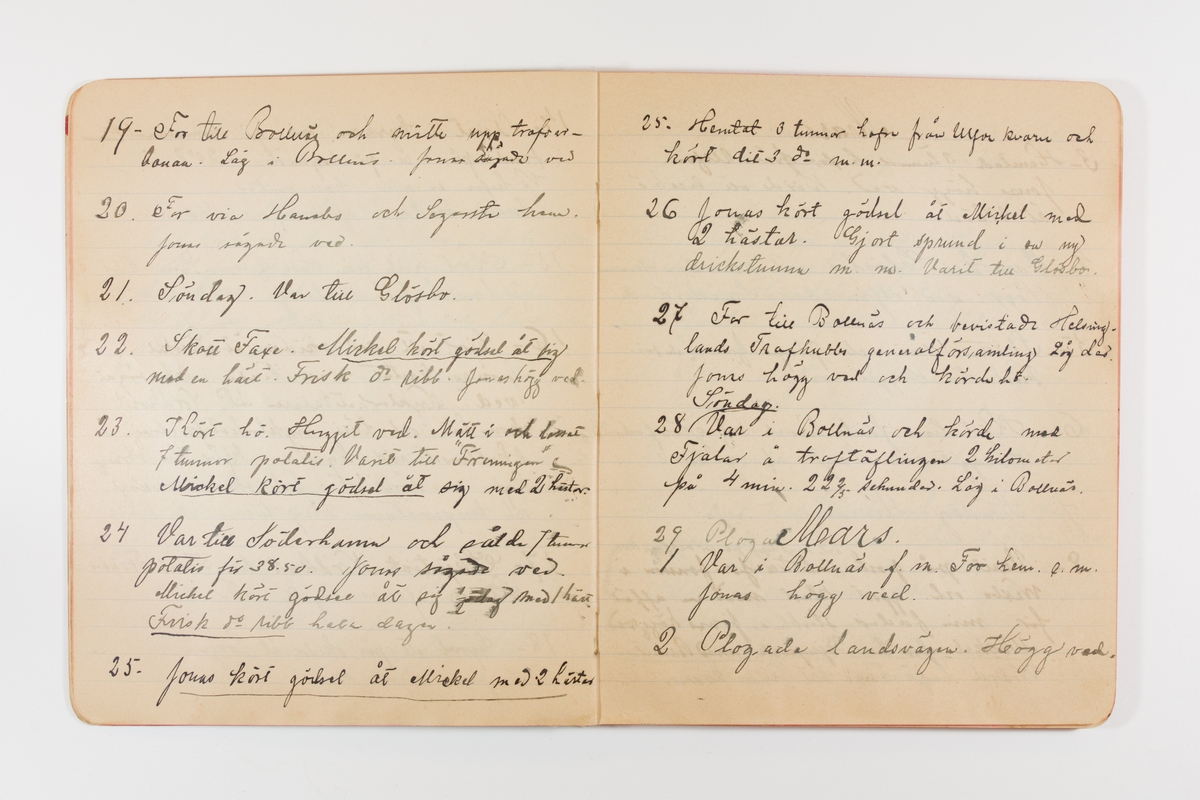 19- For till Bollnäs och mätte upp trafvar-
banan. Låg i Bollnäs. Jonas sågade ved
20. For via Hanebo och Segersta hem.
Jonas sågade ved.
21. Söndag. Var till Glösbo.
22. Skott Faxe. Mickel kört gödsel åt sig
med en häst. Frisk do ribb. Jonas högg ved.
23. Kört hö. Huggit ved. Mätt i och lassat
7 tunnor potatis. Varit till "Föreningen"
Mickel kört gödsel åt sig med 2 hästar.
24 Var till Söderhamn och sålde 7 tunnor
potatis för 38.50. Jonas sågade ved.
Mickel kört gödsel åt sig 1/2 dag med 1 häst.
Frisk do ribb hela dagen.
25- Jonas kört gödsel åt Mickel med 2 hästar
25- Hemtat 3 tunnor hafre från kvarn och
kört dit 3 do m.m.
26 Jonas kört gödsel åt Mickel med
2 hästar. Gjort sprund i en ny
drickstunna m. m. Varit till Glösbo.
27 For till Bollnäs och bevistade Helsing-
lands Trafklubbs generalförsamling Låg där.
Jonas högg ved och körde hö.
Söndag.
28 Var i Bollnäs och körde med
Fjalar å traftäflingen 2 kilometer
på 4 min. 22 2/5 sekunder. Låg i Bollnäs.
29 Ploga Mars.
1 Var i Bollnäs f. m. For hem. e. m.
Jonas högg ved.
2 Plogade landsvägen. Högg ved.